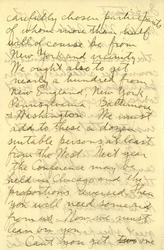 carefully chosen participants
of whom more than half
will of course be from
New York and vicinity.
We ought also to get
nearly a hundred from
New England, New York,
Pennsylvania Baltimore
& Washington. We must
add to these a dozen
suitable persons at least
from the West. Next year
the conference may be
held in Chicago and the
proportions reversed. Then
you will need some aid
from us. Now we must
lean on you.
Can't you get